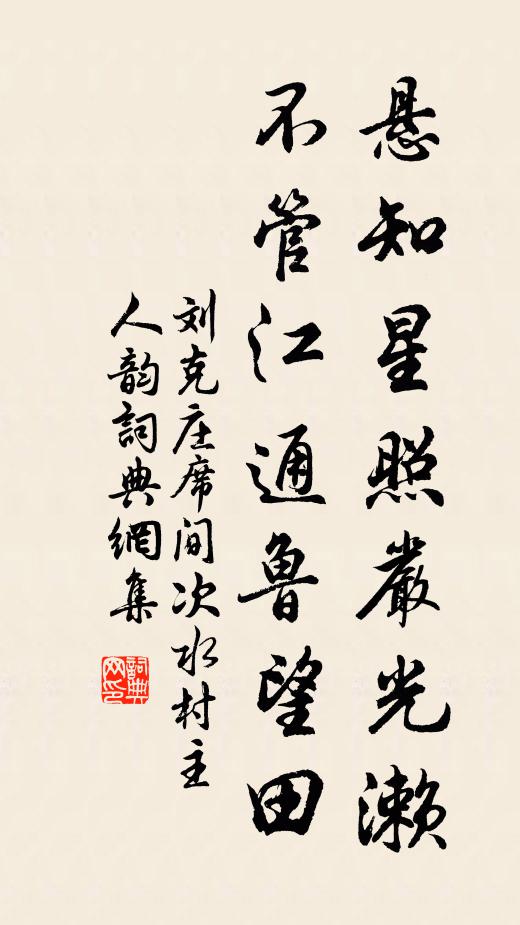 悬知星照嚴光濑
不管江通魯望田
刘克庄席间次水村主
人韵詞典網集
詞典网印